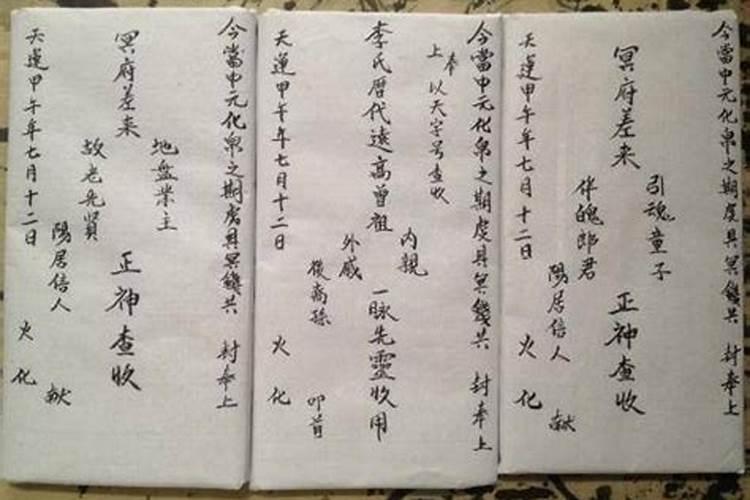 今當中元化帛之期虔具冥錢共 封奉上
冥府差来
引魂童子
伴魄郎君
正神查收
陽居信人 献
天運甲午年七月十二日 火化
今當中元化帛之期虔具冥錢共 封奉上
奉上 以天字号查收
李氏暦代遠高曾祖
內親
外戚
一脉先靈收用
後裔孫 叩首
天運甲午年七月十二日 火化
今當中元化帛之期虔具冥錢共 封奉上
冥府差来
地盤業主
故老先賢
正神查收
陽居信人 献
天運甲午年七月十二日 火化